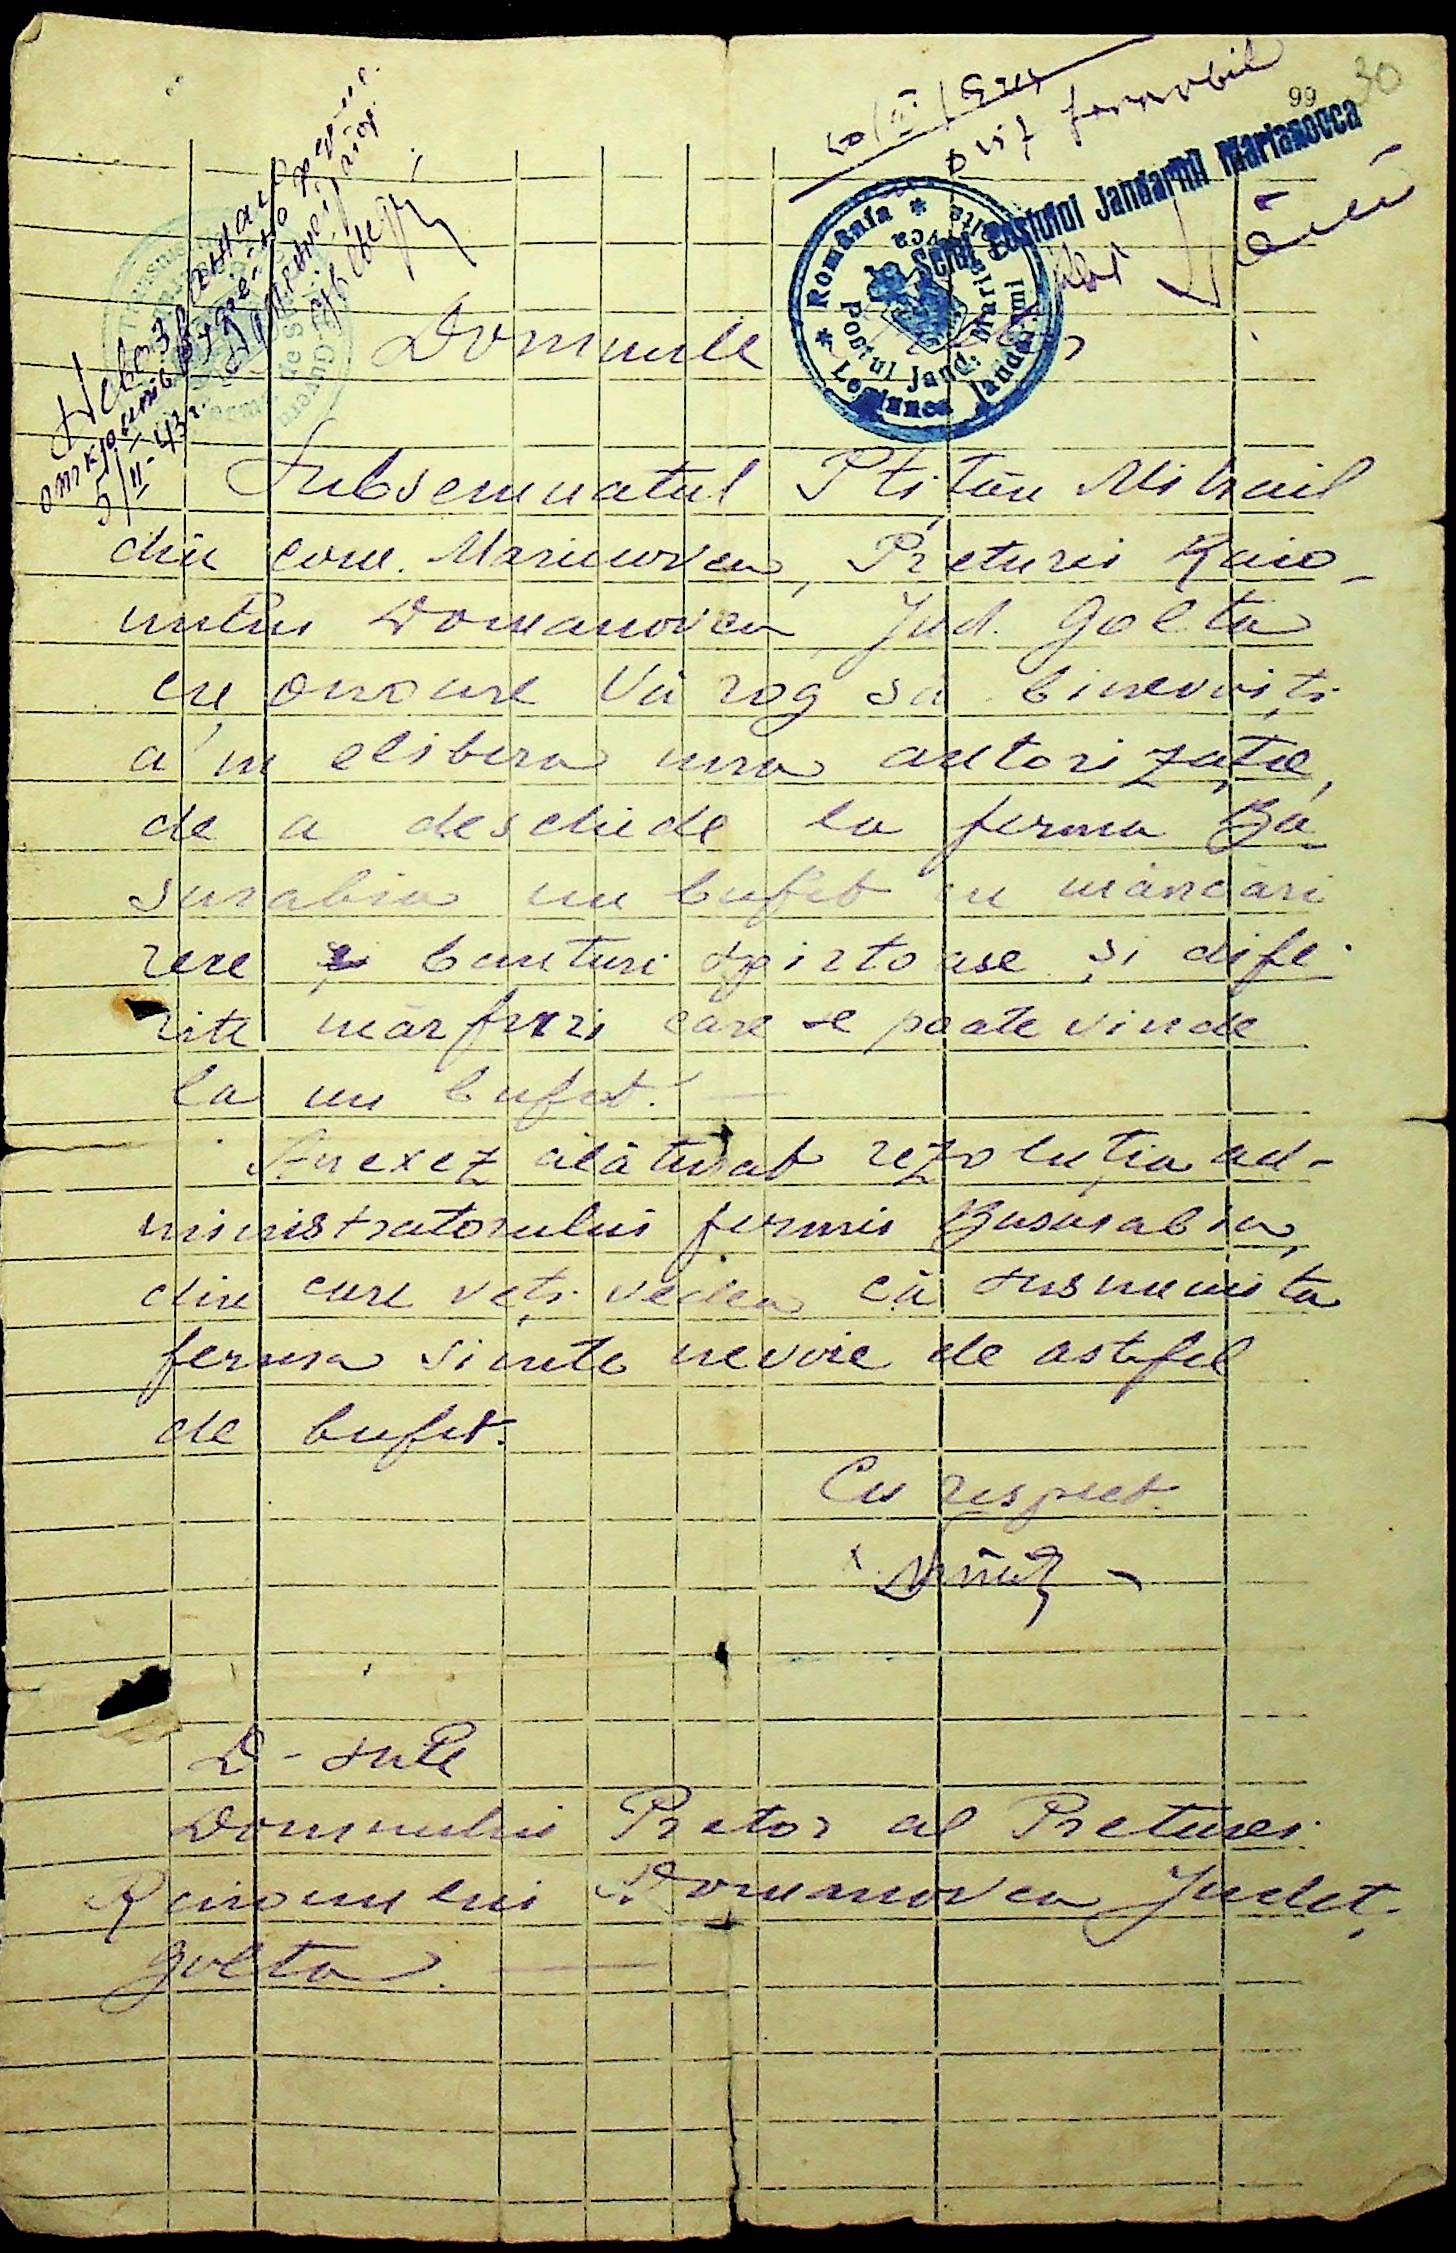 99
30
aviz favorabil
Șeful Postului Jandarmi Marianovca
România
Legiunea Jandarmi
Postul Jand. Marianovca
Не возражаю
открыть буфет
5/II-43 г.
Domnule
Subsemnatul Ptițân Mihail
din com. Marianovca, Preturei Raio-
nului Domanovca Jud. Golta
cu onoare Vă rog să binevoiți
a'm elibera una autorizație,
de a deschide la ferma Ba-
sarabia un bufet cu mâncări
rere și bauturi spirtoase și dife-
rite mărfuri care se poate vinde
la un bufet. —
Anexez alăturat rezoluția ad-
ministratorului fermei Basarabia,
din care veți vedea că susnumita
ferma simte nevoie de astfel
de bufet.
Cu respect.
D-sale
Domnului Pretor al Preturei
Raionului Domanovca Județ.
Golta. —